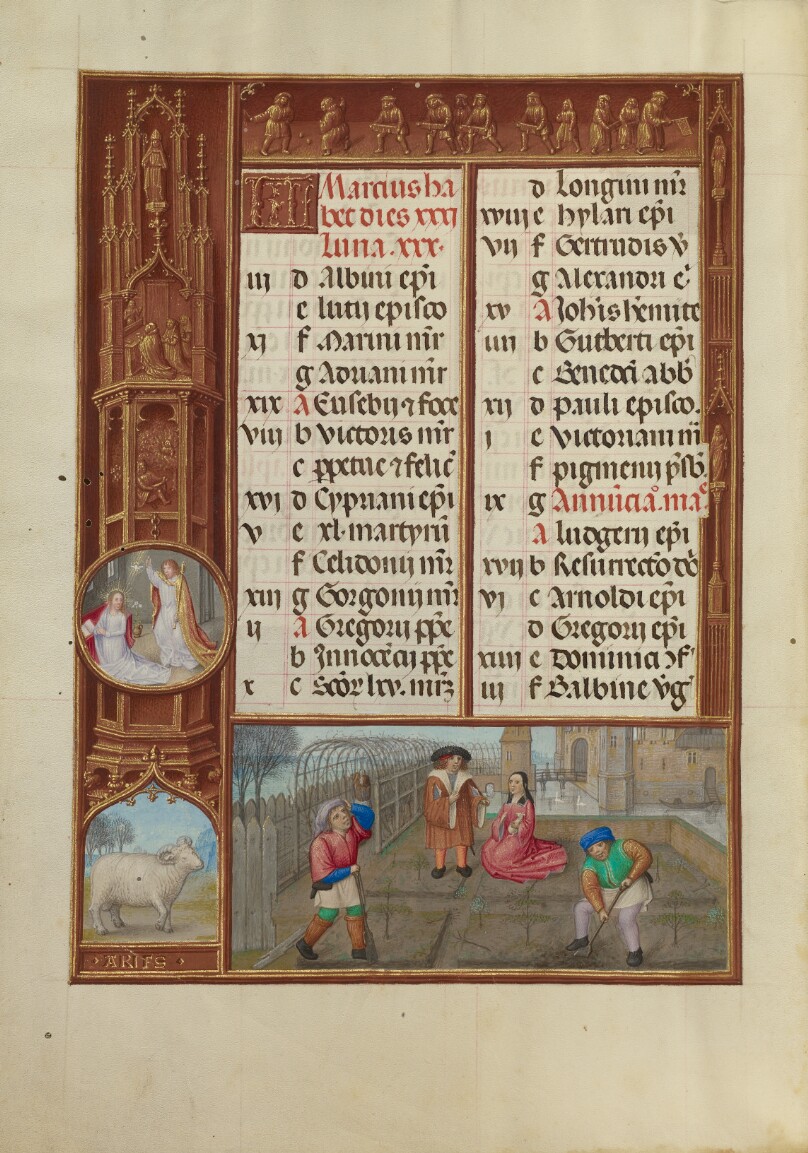 KL Marcius ha
bet dies xxxi
Luna .xxx.
iij d Albini ep̄i
e lucij episco
xj f Marini mr̄
g Adriani mr̄
xix A Eusebij ⁊ foce
viij b victoris mr̄
c ꝑpetue ⁊ felic̄
xvj d Cypriani ep̄i
v e xl. martyrū
f Celidonij mr̄
xiij g Gorgonij mr̄
ij A Gregorij pp̄e
b Innocēcij pp̄e
x c Scōr lxv. mr̄z
d Longini mr̄
xviij e hylari ep̄i
vij f Gertrudis v̄
g Alexandri e
xv A Joh̄is h̄emite
iiij b Gutberti ep̄i
c Benedc̄i abb̄
xij d pauli episco.
j e victoriani m̄
f pigmenij p̄sb.
ix g Annūcia. ma
A ludgerij ep̄i
xvij b Resurrectō dō
vj c Arnoldi ep̄i
d Gregorij ep̄i
xiiij e dominici ɔf
iij f Balbine v̄g
ARIES